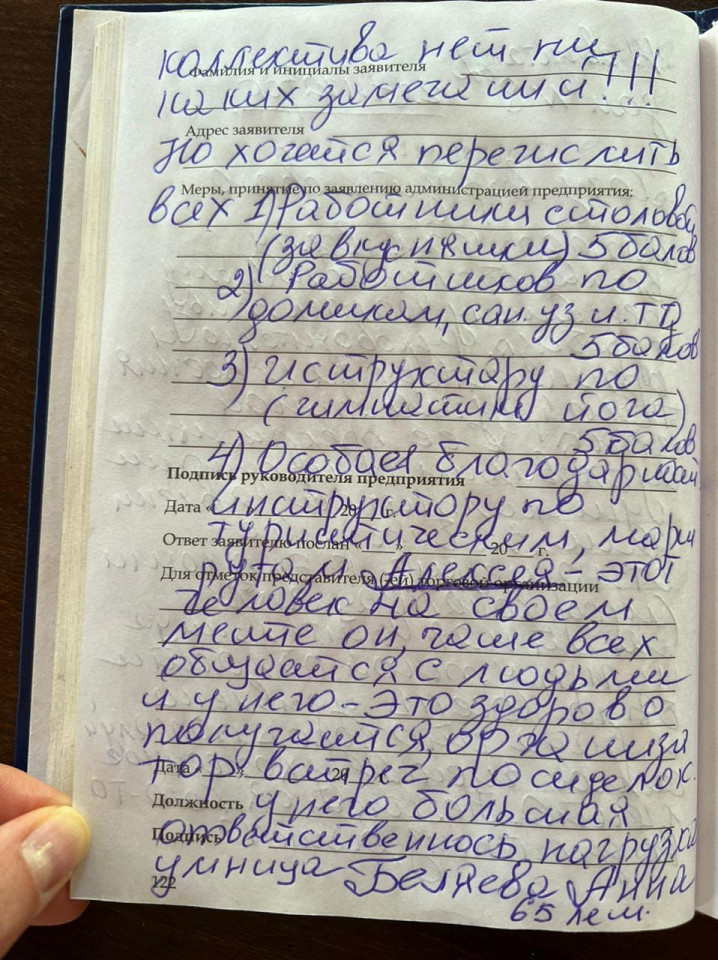 коллектива нет ни
Фамилия и инициалы заявителя
каких замечании!!!
Адрес заявителя
Но хочется перечислить
Меры, принятые по заявлению администрацией предприятия:
всех 1) Работники столовой,
(за вкусняшки) 5 балов
2) Работников по
домикам, сан. уз и. т.д
5 балов
3) иструктару по
(гимнастики йога)
5 балов
4) Особая благодарност
Подпись руководителя предприятия
Дата « 20 г.
инструктору по
туристическим, марш
Ответ заявителю послан « » 20 г.
рутам Алексея - этот
Для отметок представителя (-ей) торговой организации
человек на своем
месте он, чаше всех
общается с людьми
и у него - это здорово
получается, организа
тор встреч посиделок.
Дата « » 20 г.
Должность
у него большая
Подпись
ответственнось, нагрузка
умница Беляева Анна
122
65 лет.